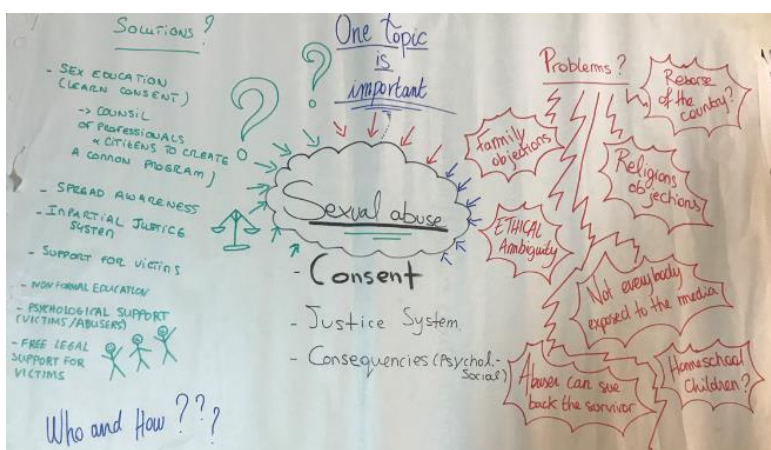 Solutions?
- SEX EDUCATION
(LEARN CONSENT)
-> COUNSIL
OF PROFESSIONALS
& CITIZENS TO CREATE
A COMMON PROGRAM)
- SPREAD AWARENESS
- INPARTIAL JUSTICE
SYSTEM
- SUPPORT FOR VICTINS
- NON FORMAL EDUCATION
- PSYCHOLOGICAL SUPPORT
(VICTIMS/ABUSERS)
- FREE LEGAL
SUPPORT FOR
VICTIMS
Who and How ???
One Topic
is
important
? ?
Sexual abuse
- Consent
- Justice System
- Consequencies (Psychol.-
Social)
Problems?
of the
country?
Family
objections
Religions
objections
ETHICAL
Ambiguity
Not everybody
exposed to the media
Abuser can sue
back the survivor
Homeschool
Children?